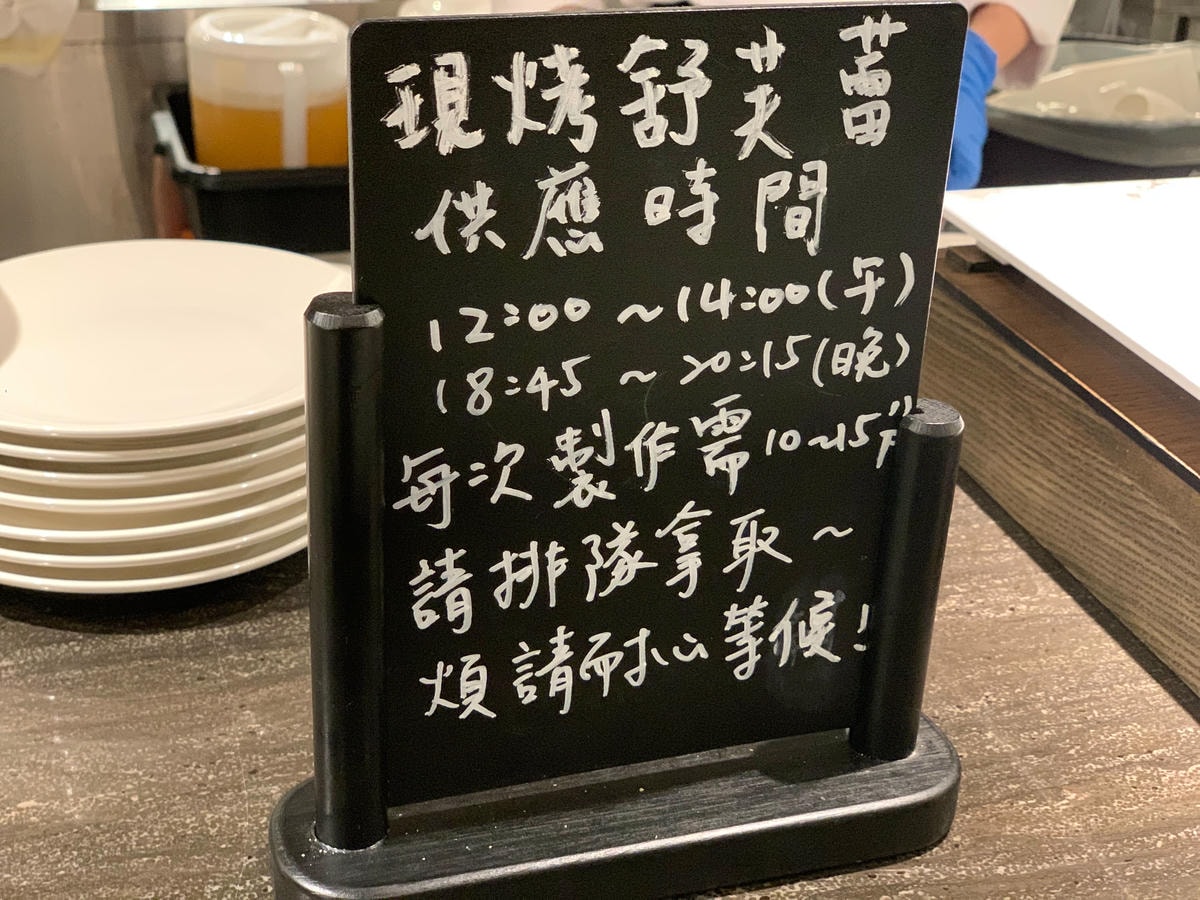 現烤舒芙蕾
供應時間
12:00 ~ 14:00(午)
18:45 ~ 20:15(晚)
每次製作需10~15分
請排隊拿取~
煩請耐心等候!